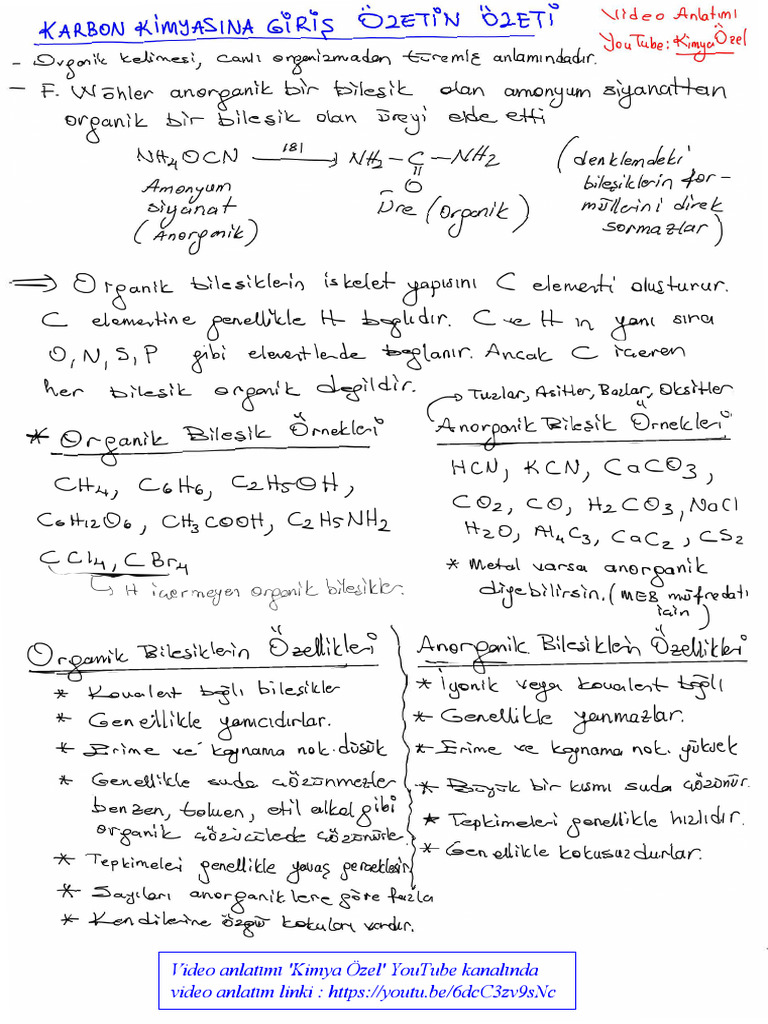 KARBON KİMYASINA GİRİŞ ÖZETİN ÖZETİ
Video Anlatımı
YouTube: Kimya Özel
- Organik kelimesi, canlı organizmadan türemiş anlamındadır.
- F. Wöhler anorganik bir bileşik olan amonyum siyanattan
organik bir bileşik olan üreyi elde etti
NH4OCN ısı → NH2 - C - NH2
O
Amonyum
siyanat
(Anorganik)
Üre (Organik)
(denklemdeki
bileşiklerin for-
müllerini direk
sormazlar)
⇒ Organik bileşiklerin iskelet yapısını C elementi oluşturur.
C elementine genellikle H bağlıdır. C ve H ın yanı sıra
O, N, S, P gibi elementlerde bağlanır. Ancak C içeren
her bileşik organik değildir.
→ Tuzlar, Asitler, Bazlar, Oksitler
* Organik Bileşik Örnekleri
CH4, C6H6, C2H5OH,
C6H12O6, CH3COOH, C2H5NH2
CCl4, CBr4
↳ H içermeyen organik bileşikler.
Anorganik Bileşik Örnekleri
HCN, KCN, CaCO3,
CO2, CO, H2CO3, NaCl
H2O, Al4C3, CaC2, CS2
* Metal varsa anorganik
diyebilirsin. (MEB müfredatı
için)
Organik Bileşiklerin Özellikleri
* Kovalent bağlı bileşikler
* Genellikle yanıcıdırlar.
* Erime ve kaynama nok. düşük
* Genellikle suda çözünmezler
benzen, toluen, etil alkol gibi
organik çözücülerde çözünürler.
* Tepkimeleri genellikle yavaş gerçekleşir
* Sayıları anorganiklere göre fazla
* Kendilerine özgü kokuları vardır.
Anorganik Bileşiklein Özellikleri
* İyonik veya kovalent bağlı
* Genellikle yanmazlar.
* Erime ve kaynama nok. yüksek
* Büyük bir kısmı suda çözünür.
* Tepkimeleri genellikle hızlıdır.
* Genellikle kokusuzdurlar.
Video anlatımı 'Kimya Özel' YouTube kanalında
video anlatım linki : https://youtu.be/6dcC3zv9sNc